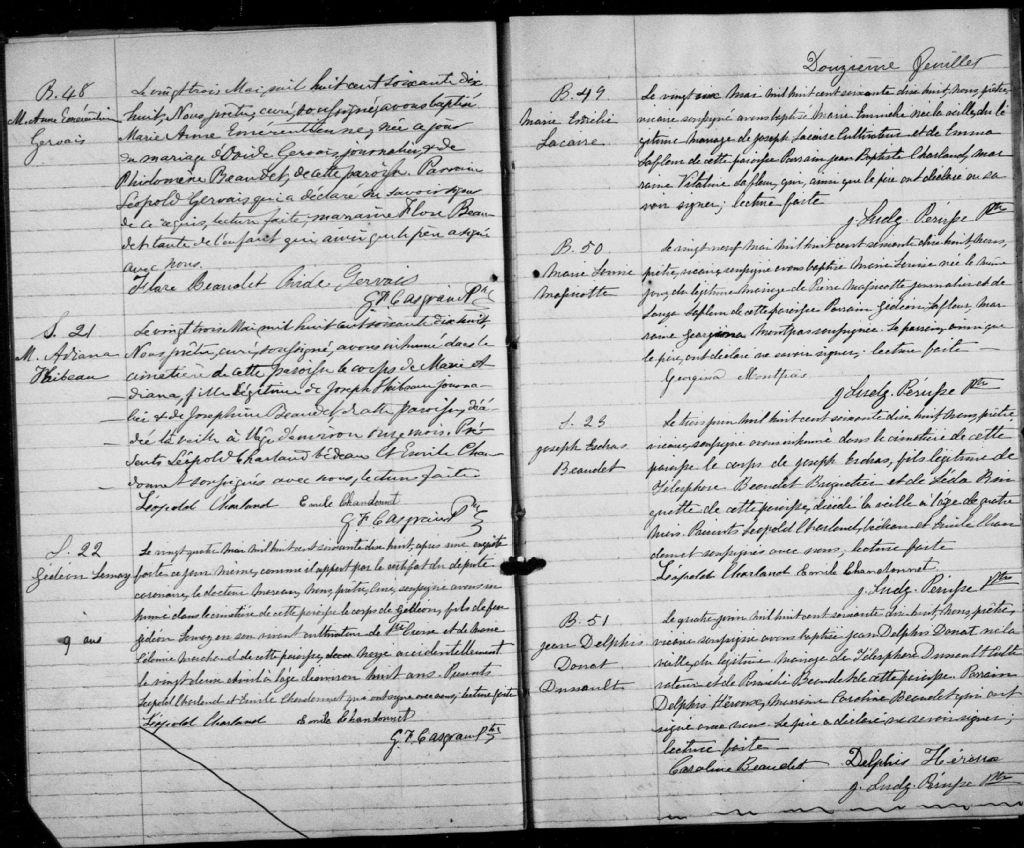 B. 48
M. Anne Emérentienne
Gervais
Le vingt trois Mai, mil huit cent soixante dix
huit, Nous prêtre, curé, soussigné, avons baptisé
Marie Anne Emérentienne, née ce jour
du mariage d'Ovide Gervais, journalier, & de
Philomène Beaudet, de cette paroisse. Parrain
Léopold Gervais qui a déclaré ne savoir signer
de ce requis, lecture faite, marraine Flore Beau-
det tante de l'enfant qui ainsi que le père a signé
avec nous.
Flore Beaudet Ovide Gervais
G. F. Casgrain Ptre
S. 21
M. Adiana
Haibeau
Le vingt trois Mai mil huit cent soixante dix huit,
Nous prêtre, curé, soussigné, avons inhumé dans le
cimetière de cette paroisse le corps de Marie A
diana, fille légitime de Joseph journa-
lier & de Josephine Beaudet de cette paroisse, décé-
dée la veille à l'âge d'environ onze mois. Pré-
sents Léopold Charland bédeau et Emile Chan-
donnet soussignés avec nous, lecture faite
Léopold Charland Emile Chandonnet
G. F. Casgrain Ptre
S. 22
Gédéon Lemay
9 ans
Le vingt quatre mai mil huit cent soixante dix huit, après une enquête
faite ce jour même, comme il appert par le certificat du député
coronaire, le docteur nous, prêtre, curé, soussigné avons in-
humé dans le cimetière de cette paroisse le corps de Gédéon, fils de feu
Gédéon Lemay, en son vivant cultivateur de Ste et de Marie
Marchand de cette paroisse, noyé accidentellement
le vingt deux à l'âge d'environ huit ans. Présents
Léopold Charland et Emile Chandonnet qui ont signé avec nous, lecture faite
Léopold Charland Emile Chandonnet
G. F. Casgrain Ptre
Douzième feuillet
B. 49
Marie
Lacaire
Le vingt six mai mil huit cent soixante dix huit, nous, prêtre
vicaire soussigné avons baptisé Marie née la veille, du lé
gitime mariage de Joseph Cultivateur et de Emma
Lafleur de cette paroisse Parrain Jean Baptiste Charland, mar
raine Lafleur, qui, ainsi que le père ont déclaré ne sa
voir signer; lecture faite
J. Ludg. Pérusse Ptre
B. 50
Marie Louise
Massicotte
Le vingt neuf mai mil huit cent soixante dix huit, nous,
prêtre, vicaire, soussigné avons baptisé Marie Louise née le même
jour, du légitime mariage de Pierre Massicotte journalier et de
Louisa Lafleur de cette paroisse Parrain Gédéon Lafleur, mar
raine Georgina Montpas soussignée. Le parrain, ainsi que
le père, ont déclaré ne savoir signer; lecture faite —
Georgina Montpas
J. Ludg. Pérusse Ptre
S. 23
Joseph Esdras
Beaudet
Le trois juin mil huit cent soixante dix huit, nous, prêtre
vicaire, soussigné avons inhumé dans le cimetière de cette
paroisse le corps de Joseph Esdras, fils légitime de
Télesphore Beaudet Briquetier et de Léda
de cette paroisse, décédé la veille à l'âge de quatre
mois. Présents Léopold Charland, bédeau et Emile Chan
donnet soussignés avec nous; lecture faite
Léopold Charland Emile Chandonnet
J. Ludg. Pérusse Ptre
B. 51
Jean Delphis
Donat
Dussault
Le quatre juin mil huit cent soixante dix huit, nous, prêtre,
vicaire soussigné avons baptisé Jean Delphis Donat né la
veille, du légitime mariage de Télesphore Dussault culti
vateur et de Beaudet de cette paroisse. Parrain
Delphis Héroux, marraine Caroline Beaudet qui ont
signé avec nous. Le père a déclaré ne savoir signer;
lecture faite —
Caroline Beaudet Delphis Héroux
J. Ludg. Pérusse Ptre